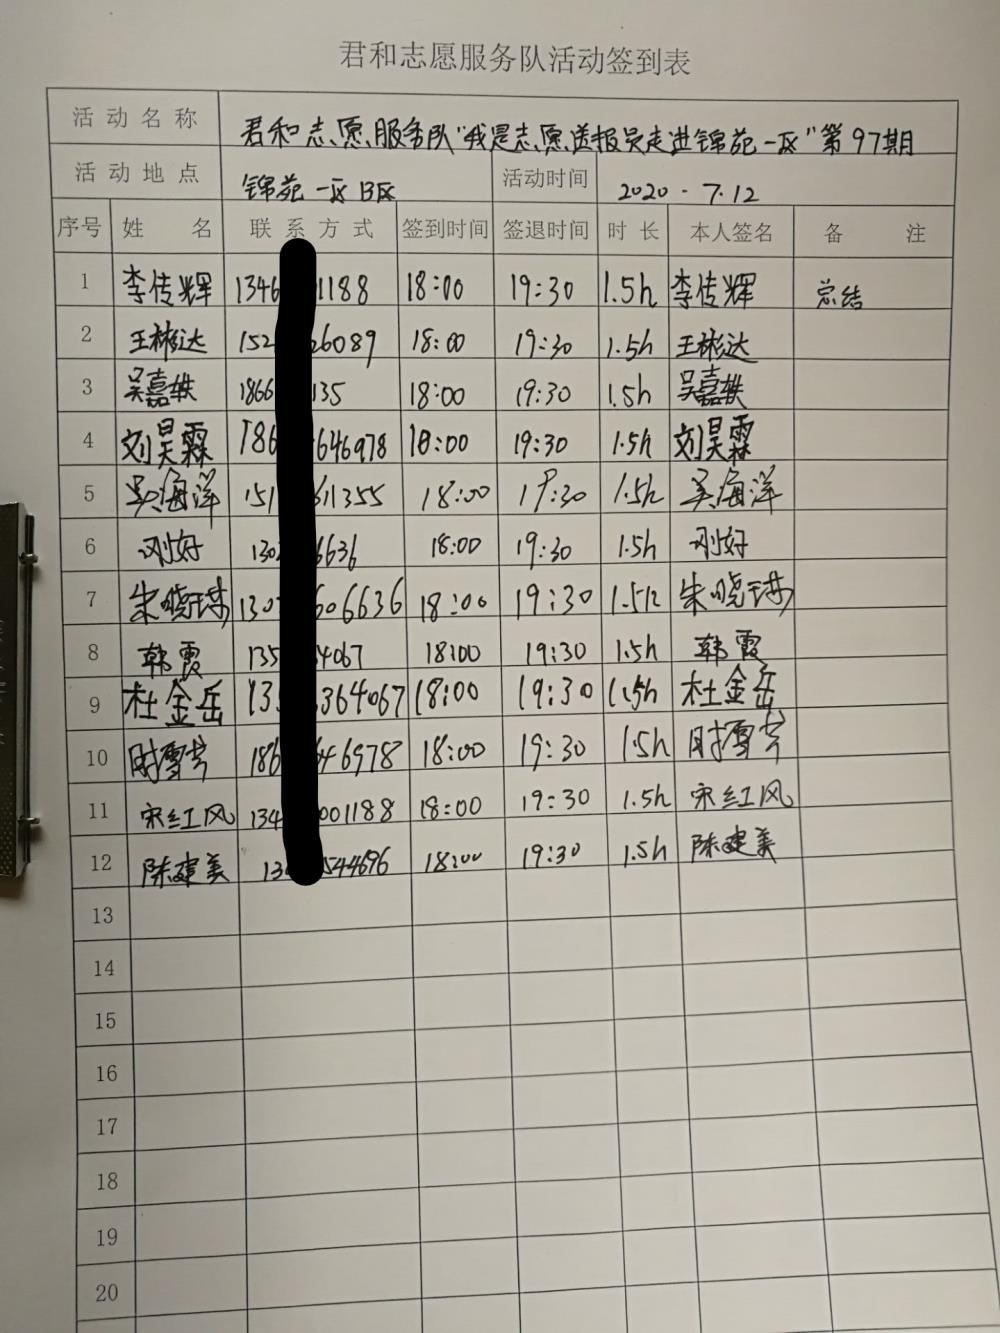 君和志愿服务队活动签到表
活动名称 君和志愿服务队“我是志愿送报员走进锦苑一区”第97期
活动地点 锦苑一区B区 活动时间 2020.7.12
序号 姓名 联系方式 签到时间 签退时间 时长 本人签名 备注
1 李传辉 1346 1188 18:00 19:30 1.5h 李传辉 总结
2 王彬达 152 26089 18:00 19:30 1.5h 王彬达
3 吴嘉轶 1866 135 18:00 19:30 1.5h 吴嘉轶
4 刘昊霖 186 646978 18:00 19:30 1.5h 刘昊霖
5 吴海洋 151 611355 18:00 19:30 1.5h 吴海洋
6 刚好 130 6636 18:00 19:30 1.5h 刚好
7 朱晓 130 606636 18:00 19:30 1.5h 朱晓
8 韩霞 135 4067 18:00 19:30 1.5h 韩霞
9 杜金岳 13 364067 18:00 19:30 1.5h 杜金岳
10 时雪芹 186 646978 18:00 19:30 1.5h 时雪芹
11 宋红风 134 001188 18:00 19:30 1.5h 宋红风
12 陈建美 13 544696 18:00 19:30 1.5h 陈建美
13
14
15
16
17
18
19
20